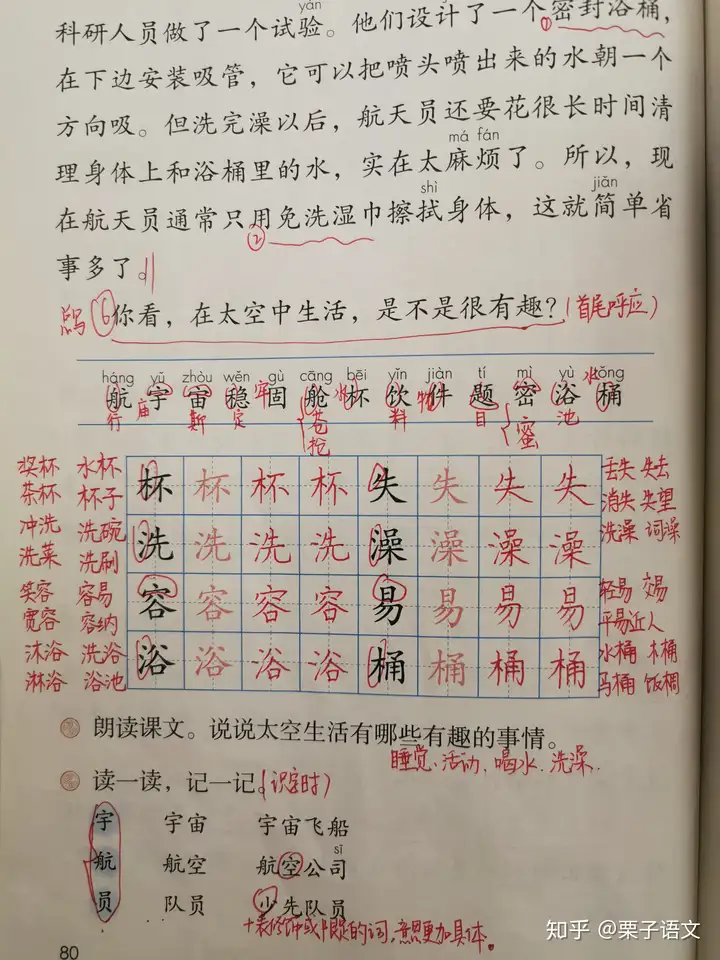 yán
科研人员做了一个试验。他们设计了一个密封浴桶，
在下边安装吸管，它可以把喷头喷出来的水朝一个
方向吸。但洗完澡以后，航天员还要花很长时间清
má fán
理身体上和浴桶里的水，实在太麻烦了。所以，现
shì jiǎn
在航天员通常只用免洗湿巾擦拭身体，这就简单省
事多了。
你看，在太空中生活，是不是很有趣？（首尾呼应）
háng yǔ zhòu wěn gù cāng bēi yǐn jiàn tí mì yù tǒng
航 宇 宙 稳 固 舱 杯 饮 件 题 密 浴 桶
行 庙 斯 定 牢 苍 抢 水 料 物 目 蜜 池 水
奖杯 水杯 杯 杯 杯 杯 失 失 失 失 丢失 失去
茶杯 杯子 消失 失望
冲洗 洗碗 洗 洗 洗 洗 澡 澡 澡 澡 洗澡 词澡
洗菜 洗刷
笑容 容易 容 容 容 容 易 易 易 易 轻易 交易
宽容 容纳 平易近人
沐浴 洗浴 浴 浴 浴 浴 桶 桶 桶 桶 水桶 木桶
淋浴 浴池 马桶 饭桶
朗读课文。说说太空生活有哪些有趣的事情。
睡觉、活动、喝水、洗澡.
读一读，记一记。（识字时）
宇 宇宙 宇宙飞船
sī
航 航空 航空公司
员 队员 少先队员
+表修饰或限定的词，意思更加具体。
80
知乎 @栗子语文